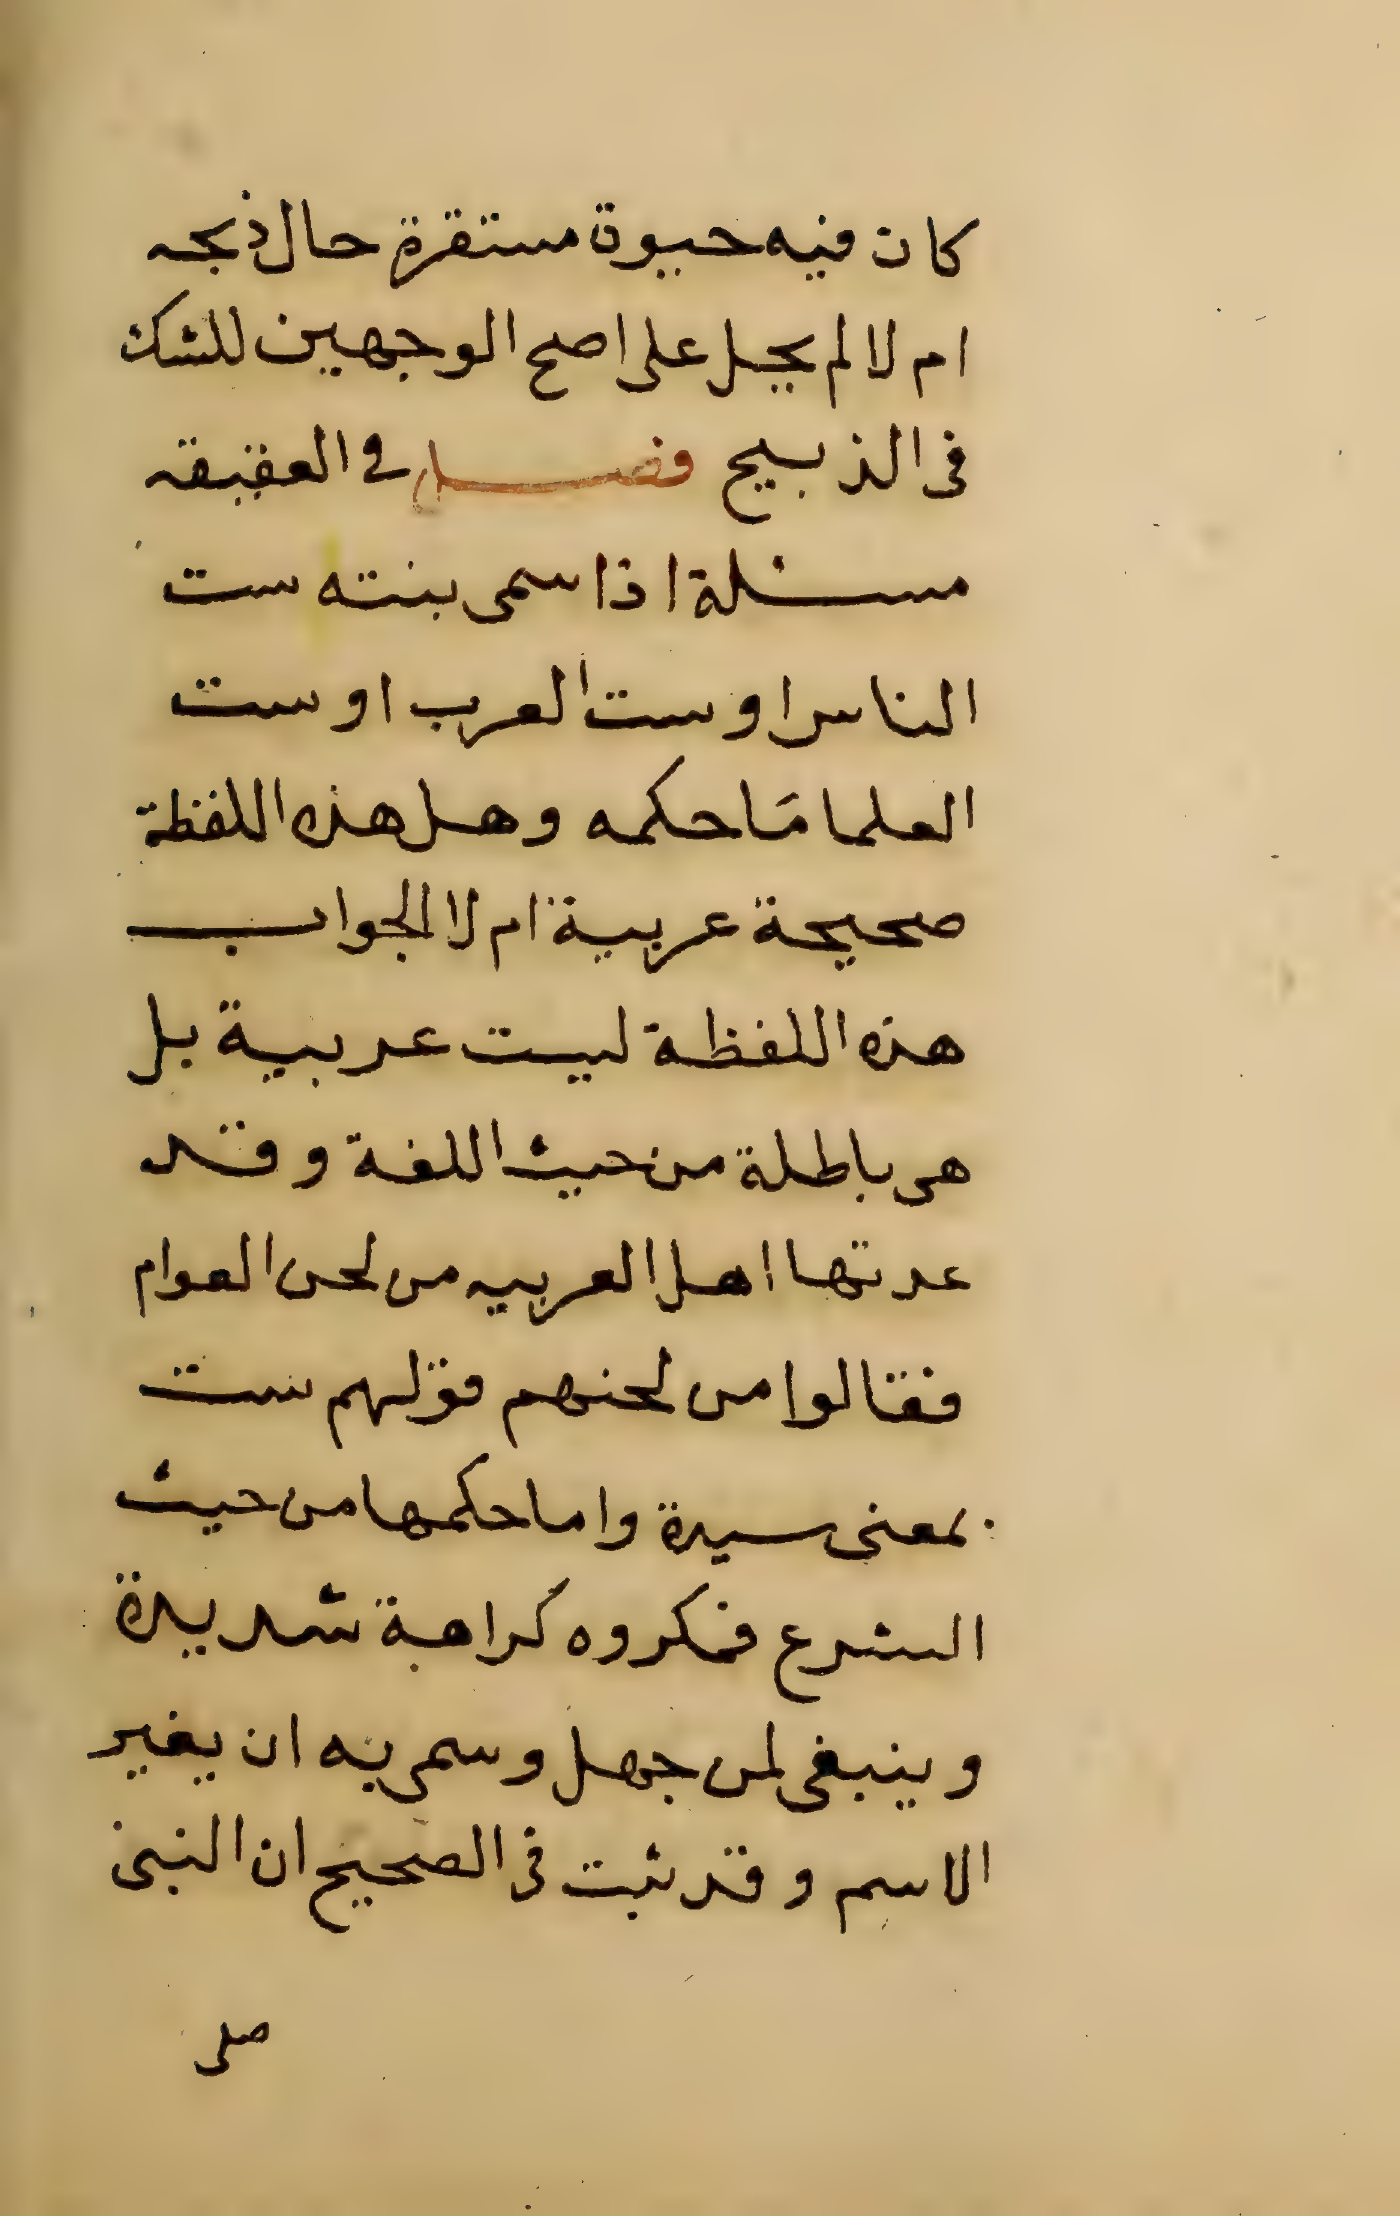 كان فيه حيوة مستقرة حال ذبحه
ام لا لم يحل على اصح الوجهين للشك
فى الذبيح فصل فى العقيقه
مسئلة اذا سمى بنته ست
الناس او ست العرب او ست
العلما مَا حكمه وهل هذه اللفظة
صحيحة عربية ام لا الجواب
هذه اللفظة ليست عربية بل
هى باطلة من حيث اللغة وقد
عدتها اهل العربيه من لحن العوام
فقالوا من لحنهم قولهم ست
بمعنى سيدة واما حكمها من حيث
الشرع فمكروه كراهة شديدة
وينبغى لمن جهل وسمى به ان يغير
الاسم وقد ثبت فى الصحيح ان النبى
صلى